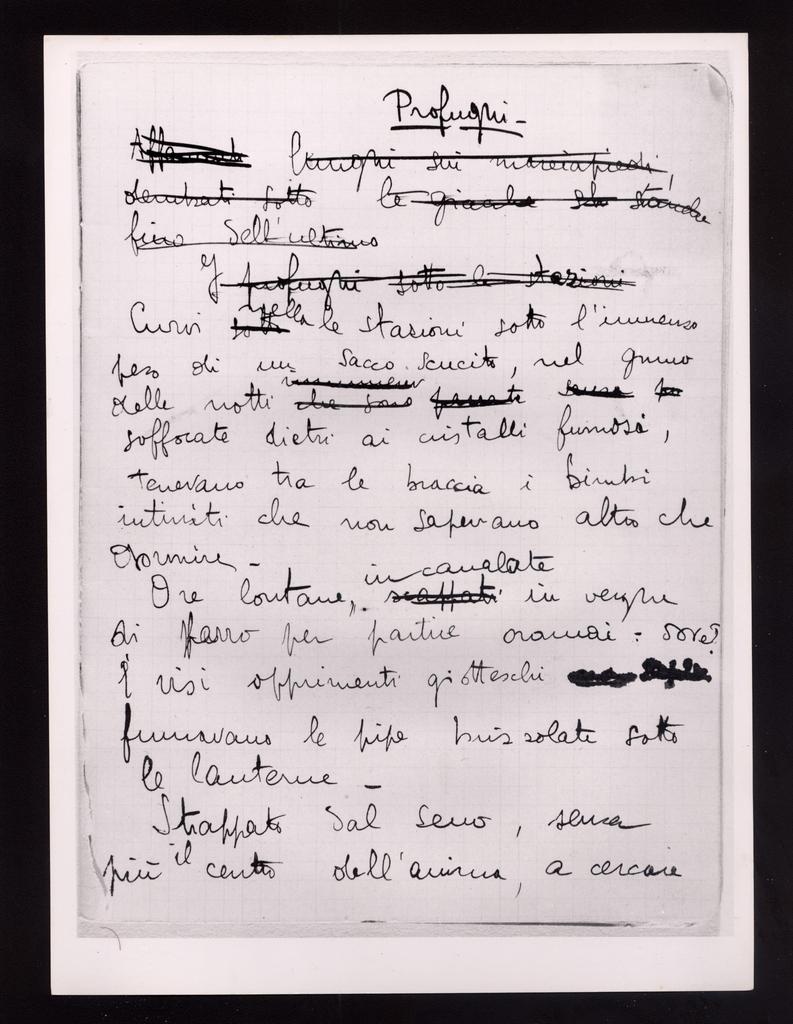 Profughi -
lunghi sui marciapiedi,
sotto le giacche
fino dell'ultimo
I profughi sotto le stazioni
Curvi nelle stazioni sotto l'immenso
peso di un sacco scucito, nel grumo
delle notti che sono
soffocate dietri ai cristalli fumosi,
tenevano tra le braccia i bimbi
che non sapevano altro che
dormire -
Ore lontane, incanalate in verghe
di ferro per partire oramai : dove?
I visi opprimenti giotteschi
fumavano le pipe sotto
le lanterne -
Strappato dal seno, senza
più il centro dell'anima, a cercare